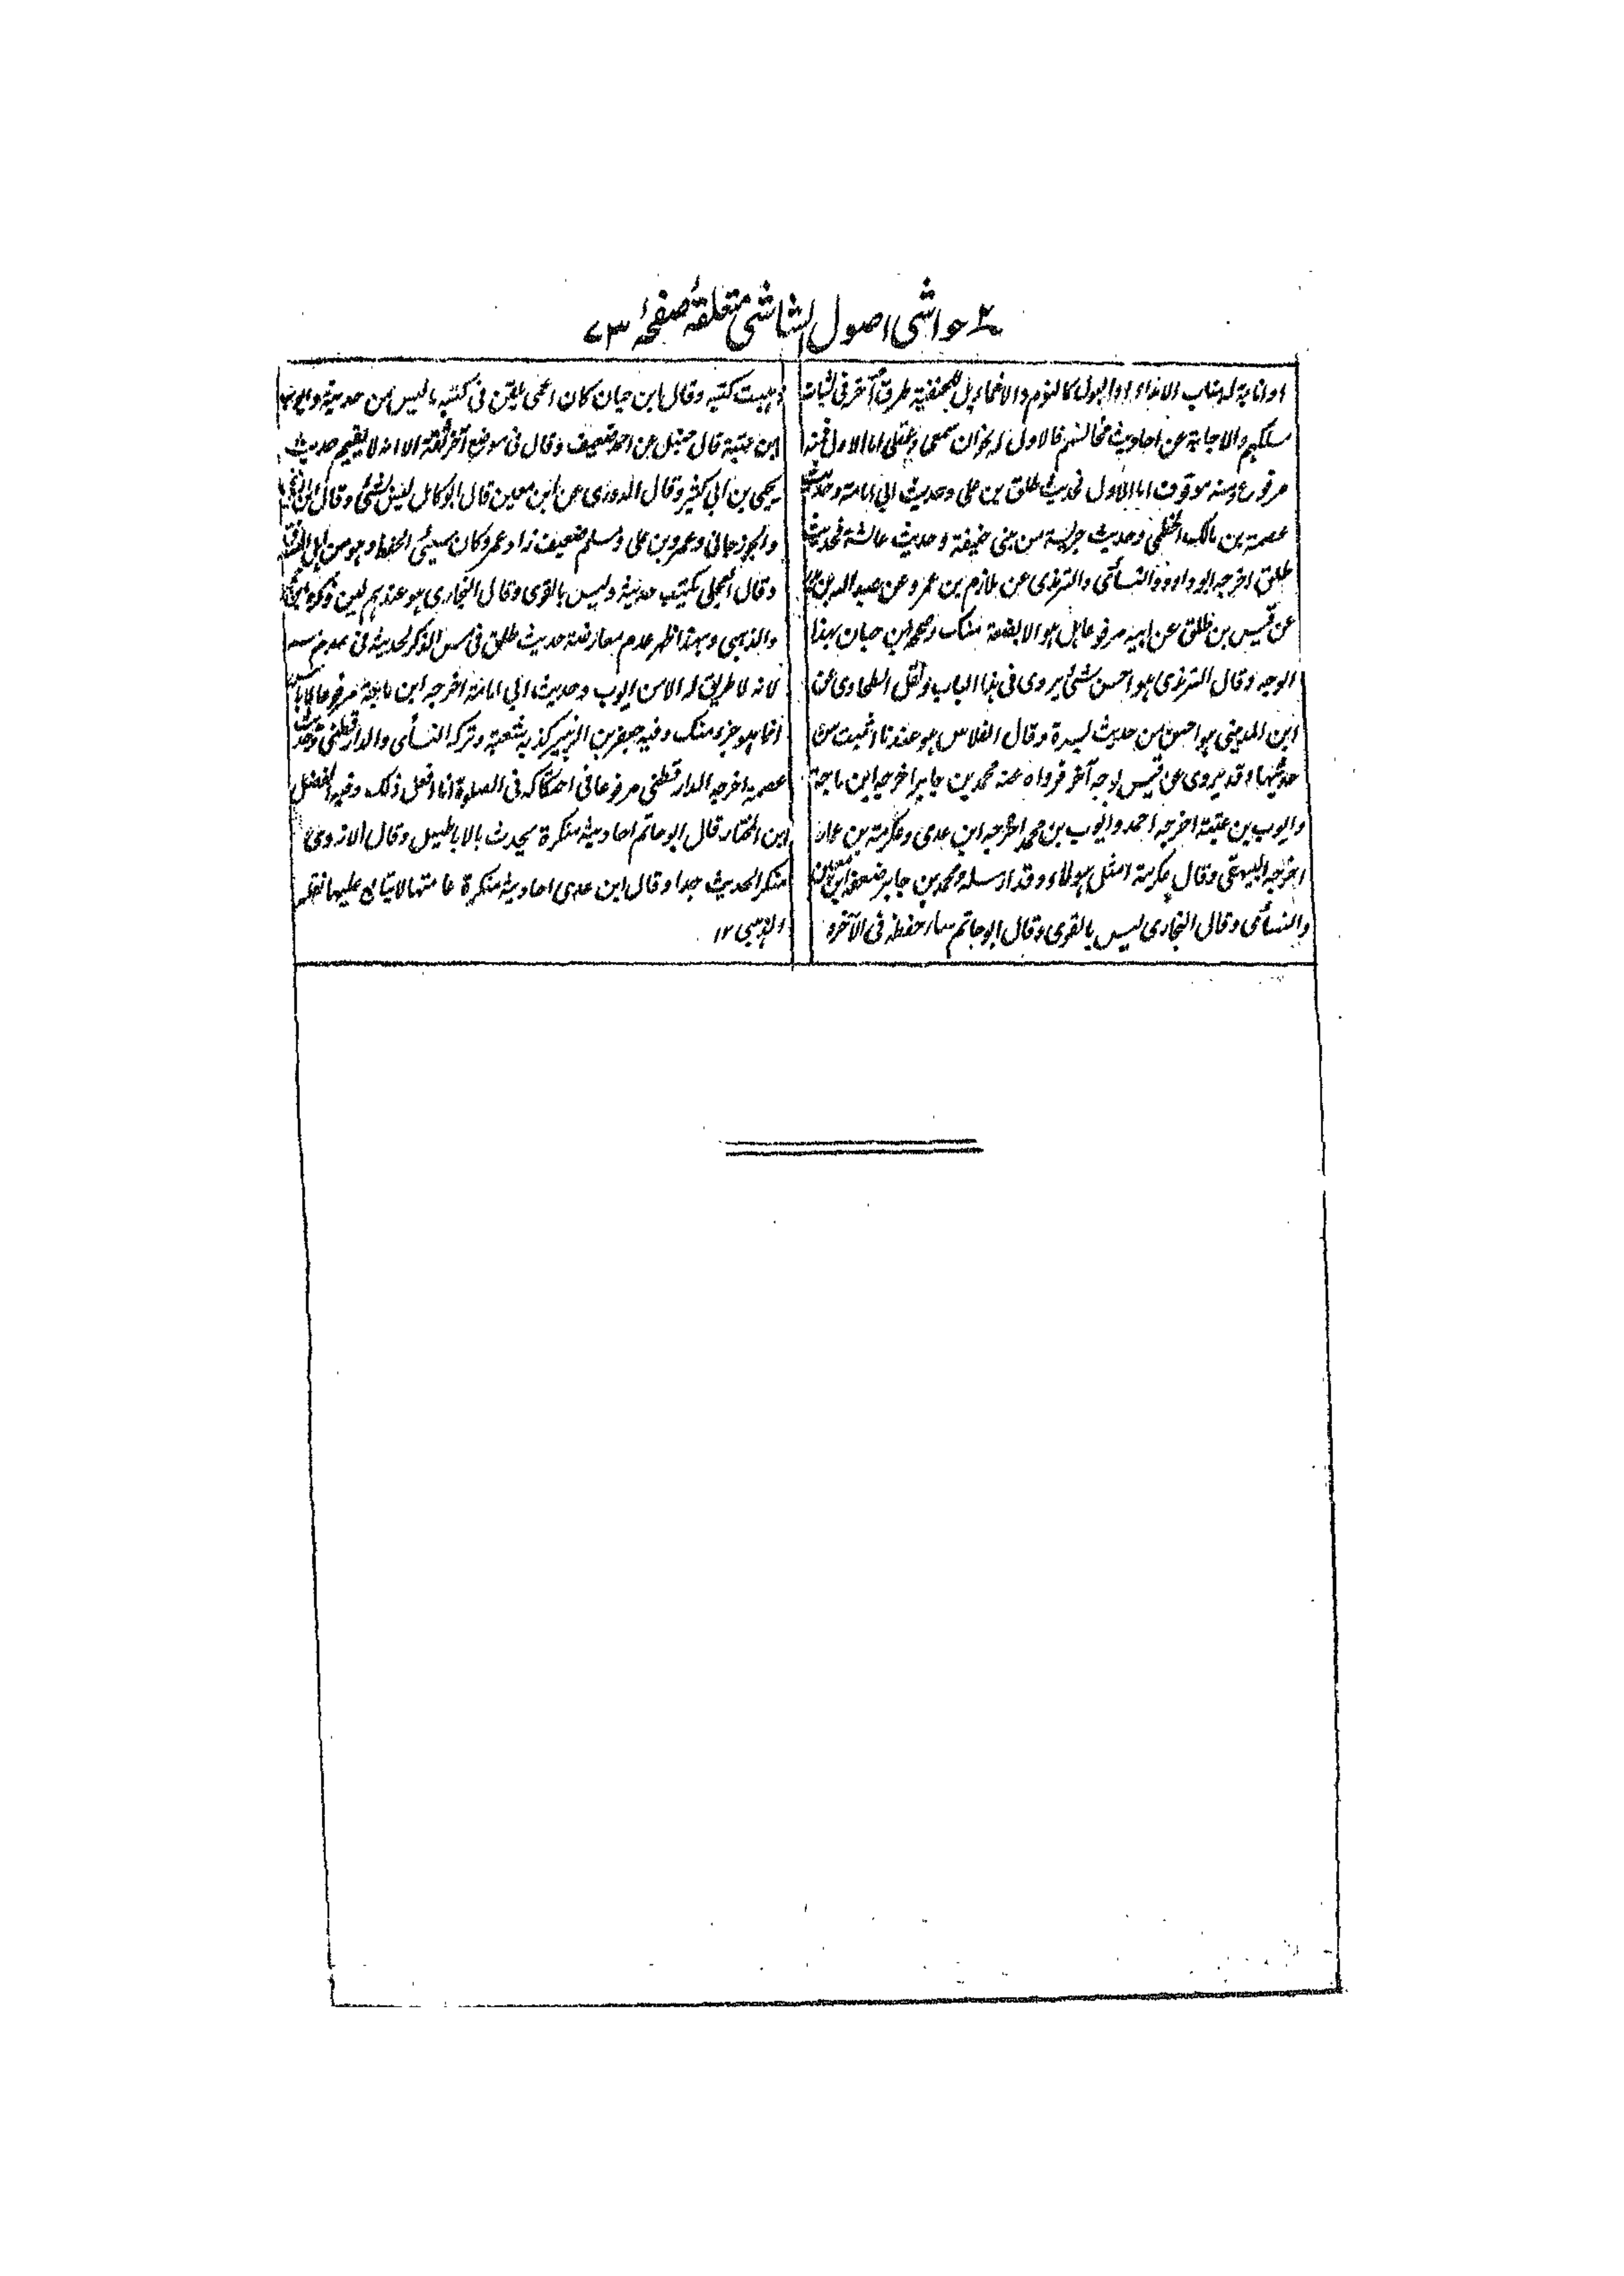 حواشى اصول الشاشى متعلقۂ صفحۂ ٧٣
او البول كالنوم والاغماء بل للحنفية طرق آخر فى اثبات
مسلكهم والاجابة عن احاديث مخالفهم فالاول له نحوان سمعى وعقلى اما الاول فمنه
مرفوع ومنه موقوف اما الاول فحديث طلق بن على وحديث ابى امامة وحديث
عصمة بن مالك الخطمى وحديث من بنى حنيفة وحديث عائشة فحديث
طلق اخرجه ابو داود والنسائى والترمذى عن ملازم بن عمرو عن عبد الله بن بدر
عن قيس بن طلق عن ابيه مرفوعا هل هو الا بضعة منك وصححه ابن حبان بهذا
الوجه وقال الترمذى هو احسن شئ يروى فى هذا الباب ونقل الطحاوى عن
ابن المدينى هو احسن من حديث بسرة وقال الفلاس هو عندنا اثبت من
حديثها وقد يروى عن قيس بوجه آخر فرواه عنه محمد بن جابر اخرجه ابن ماجة
وايوب بن عتبة اخرجه احمد وايوب بن محمد اخرجه ابن عدى وعكرمة بن عمار
اخرجه البيهقى وقال عكرمة امثل هؤلاء وقد ارسله ومحمد بن جابر ضعفه ابن معين
والنسائى وقال البخارى ليس بالقوى وقال ابو حاتم ساء حفظه فى الآخرة
وذهبت كتبه وقال ابن حبان كان اعمى يلحق فى كتبه ما ليس من حديثه وايوب
ابن عتبة قال حنبل عن احمد ضعيف وقال فى موضع آخر ثقة الا انه لا يقيم حديث
يحيى بن ابى كثير وقال الدورى عن ابن معين قال ابو كامل ليس بشئ وقال ابن المدينى
والجوزجانى وعمرو بن على ومسلم ضعيف زاد عمرو كان سيئ الحفظ وهو من اهل الصدق
وقال العجلى يكتب حديثه وليس بالقوى وقال البخارى هو عندهم لين
والذهبى وبهذا ظهر عدم معارضة حديث طلق فى مس الذكر لحديثه فى عدم مسه
لانه لا طريق له الا من ايوب وحديث ابى امامة اخرجه ابن ماجة مرفوعا لا باس
انما هو جزء منك وفيه جعفر بن الزبير كذبه شعبة وتركه النسائى والدارقطنى وحديث
عصمة اخرجه الدارقطنى مرفوعا فى احتكاكه فى الصلوة انا افعل ذلك وفيه الفضل
ابن المختار قال ابو حاتم احاديثه منكرة يحدث بالاباطيل وقال الازدى
منكر الحديث جدا وقال ابن عدى احاديثه منكرة عامتها لا يتابع عليها نقله
الذهبى ١٢